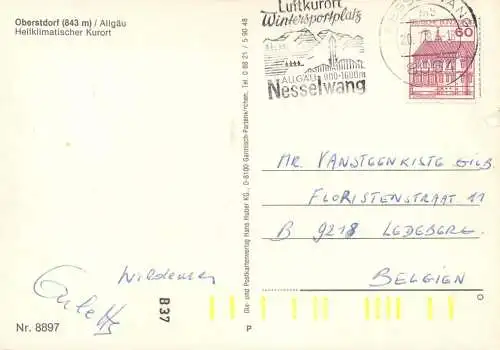 Oberstdorf (843 m) / Allgäu
Heilklimatischer Kurort
Luftkurort
Wintersportplatz
ALLGÄU 900-1600m
Nesselwang
60
Dia- und Postkartenverlag Hans Huber KG., D-8100 Garmisch-Partenkirchen, Tel. 0 88 21 / 5 90 48
MR. VANSTEENKISTE GILB.
FLORISTENSTRAAT 11
B 9218 LEDEBERG.
BELGIEN
B 37
Nr. 8897
P